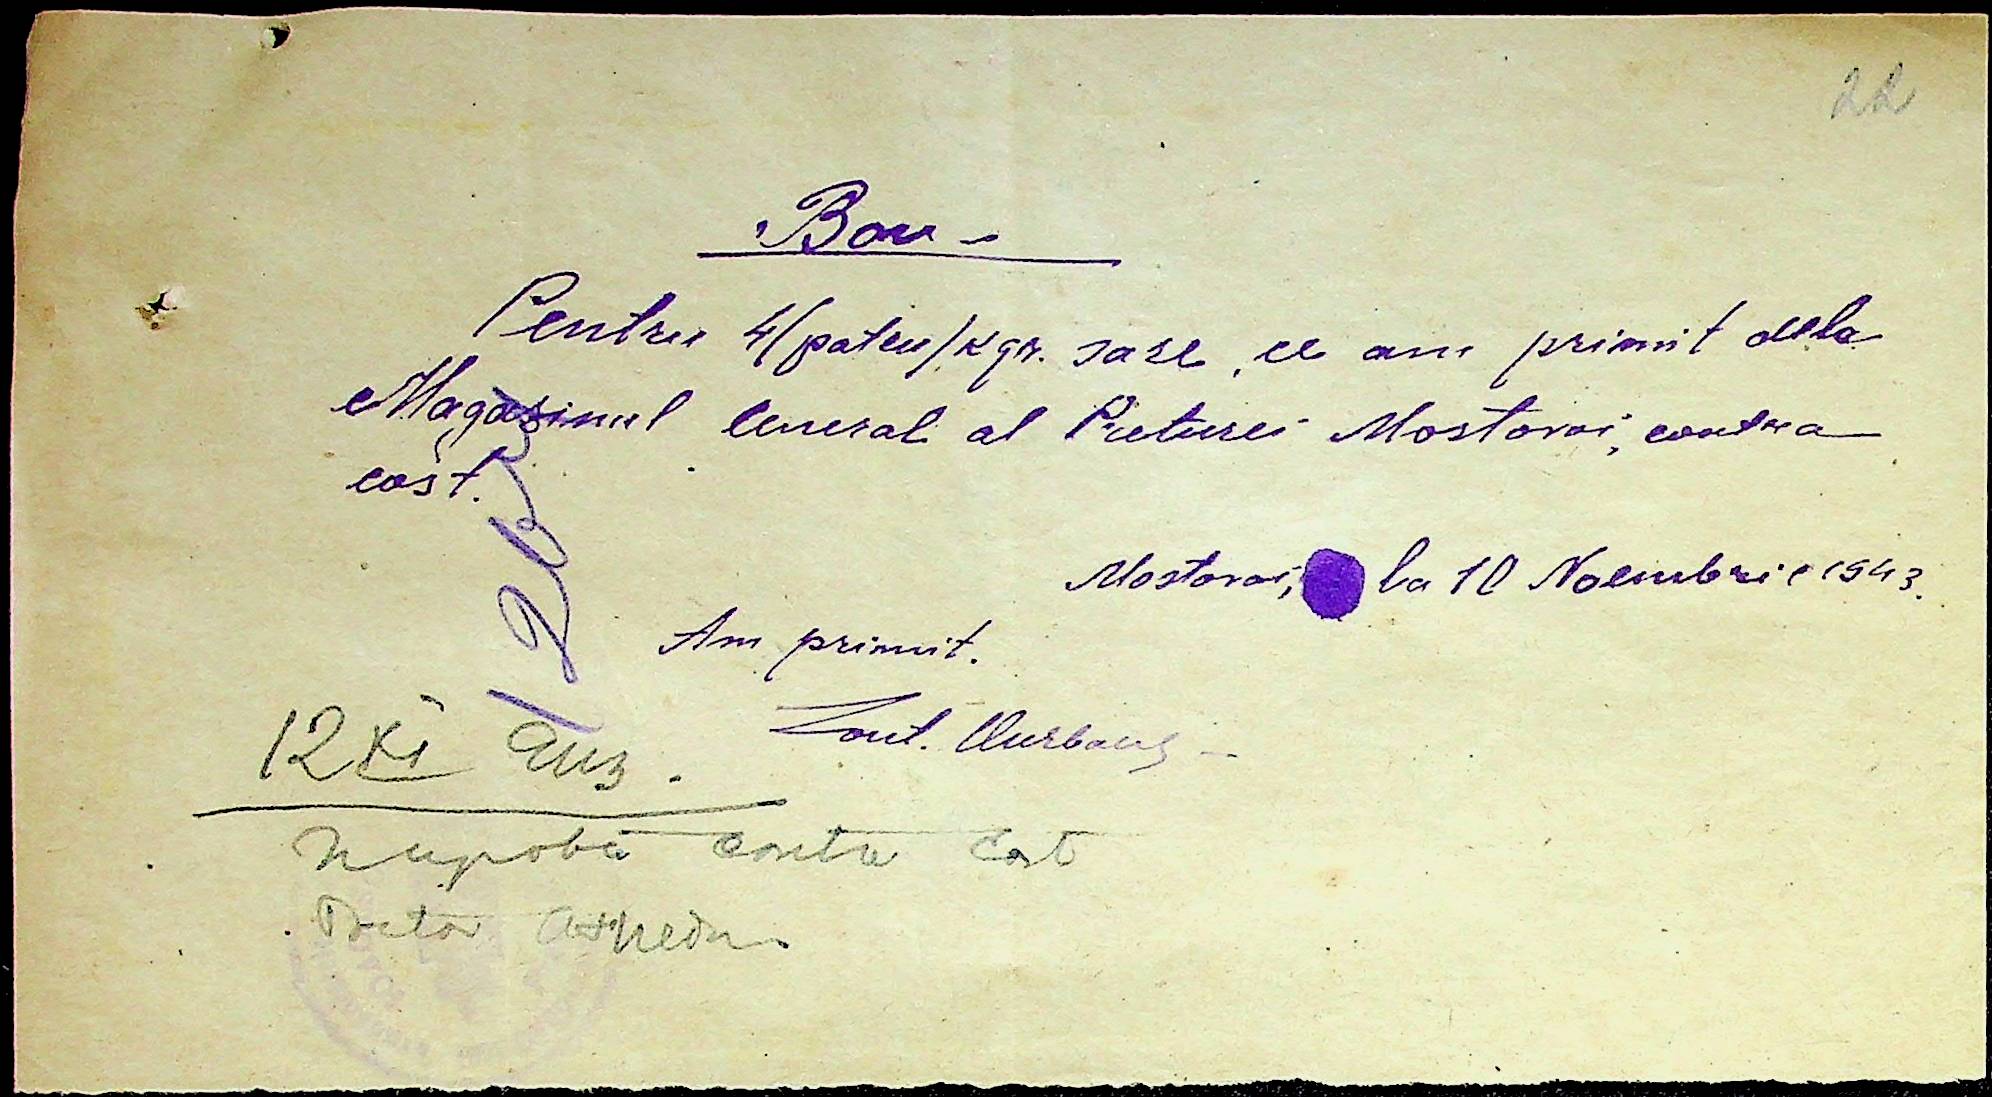 22
Bon -
Pentru 4 (patru) kgr. sare, ce am primit dela
Magazinul General al Preturei Mostovoi, contra
cost.
Mostovoi, la 10 Noembrie 1943.
Am primit.
12 XI 943.
contra cost
Pretor